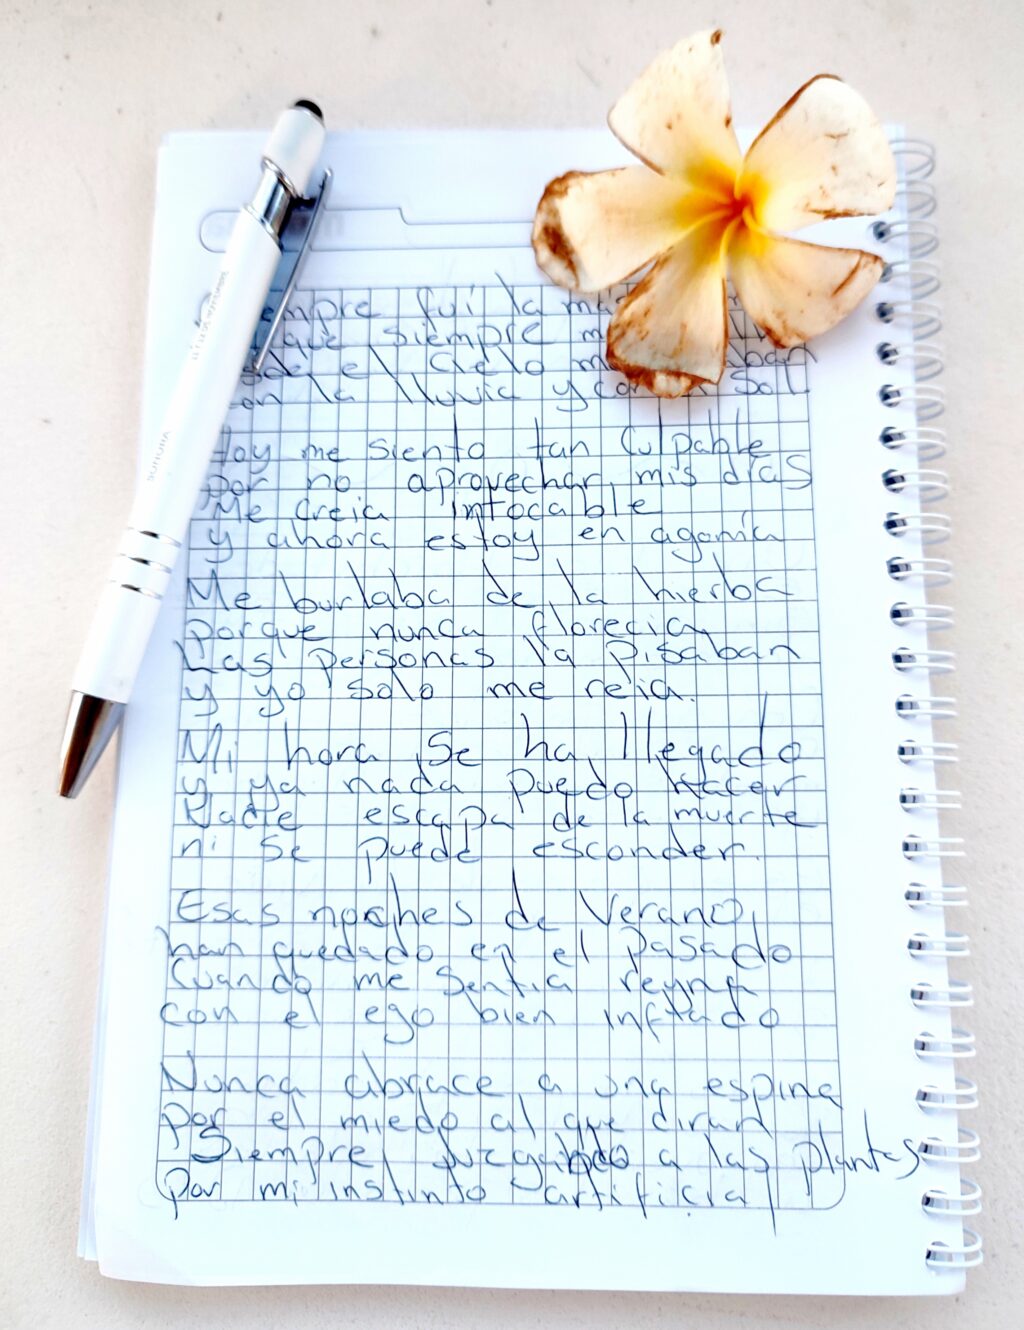 fui la
que siempre
el Cielo
la lluvia y con sol.
me siento tan Culpable
por no aprovechar mis días
Me creia intocable
y ahora estoy en agonía
Me burlaba de la hierba
porque nunca florecia,
Las personas la pisaban
y yo solo me reia.
Mi hora Se ha llegado
y ya nada puedo hacer
Nadie escapa de la muerte
ni Se puede esconder.
Esas noches de Verano,
han quedado en el Pasado
Cuando me Sentia reyna
con el ego bien inflado
Nunca abrace a una espina
por el miedo al que diran
Siempre juzgando a las plantas
Por mi instinto artificial